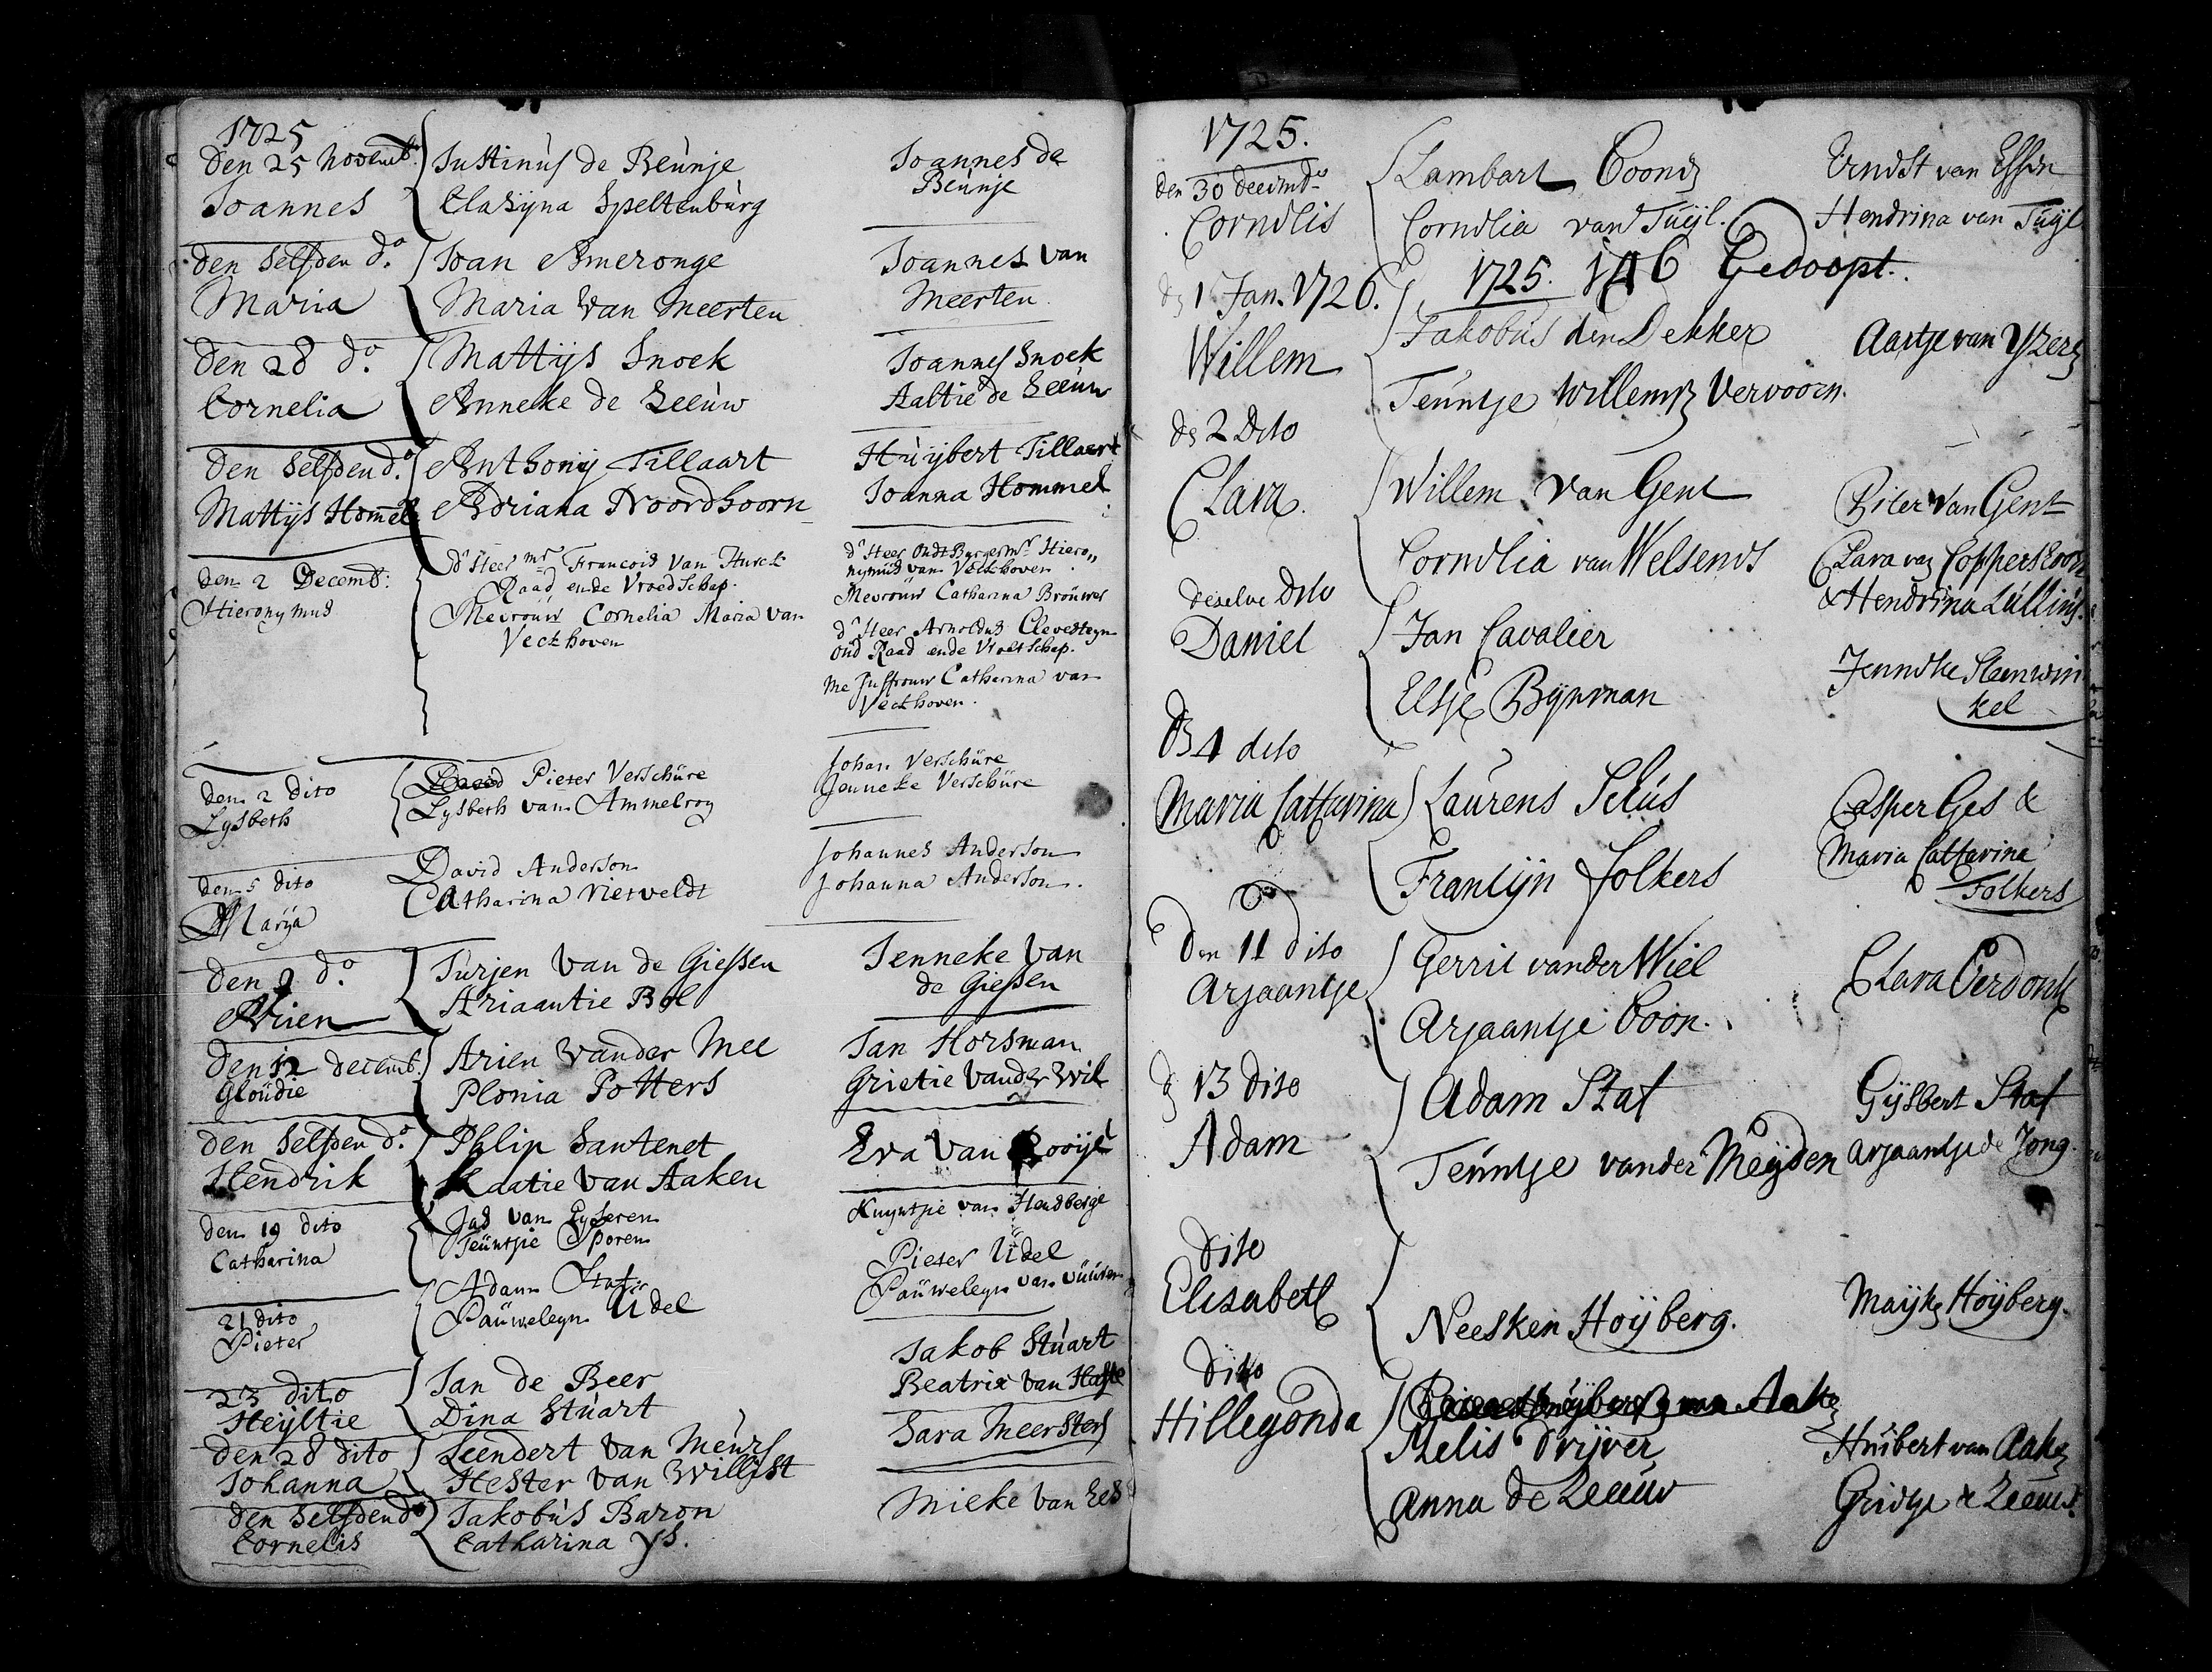 1725
den 25 novemb: Justinus de Beunje Joannes de
Joannes Clasyna Speltenburg Beunje
den selfden do. Joan Ameronge Joannes van
Maria Maria van Meerten Meerten
den 28 do. Mattijs Snoek Joannes Snoek
Cornelia Anneke de Leeuw Aaltie de Leeuw
den selfden do. Anthonij Tillaart Huijbert Tillaart
Mattijs Hommel Adriana Noordhoorn Joanna Hommel
den 2 Decemb: dr Heer mr Francois van Hurck dr Heer Oudt Burgermr Hiero„
Hieronymus Raad ende Vroedschap. nymus van Veckhoven
Mevrouw Cornelia Maria van Mevrouw Catharina Brouwer
Veckhoven dr Heer Arnoldus Clevesteyn
oud Raad ende Vroetschap.
Me Juffrouw Catharina van
Veckhoven.
den 2 dito Pieter Verschüre Johan Verschüre
Lysbeth Lysbeth van Ammelroy Jenneke Verschüre
den 5 dito David Anderson Johannes Anderson
Marya Catharina Nieveldt Johanna Anderson.
den 9 do. Jurjen van de Giessen Jenneke van
Arien Ariaantie Bol de Giessen
den 12 decemb. Arien vander Mee Jan Horsman
Gloudie Plonia Potters Grietie vander Wil
den selfden do. Philip Santenet Eva van Rooije
Hendrik Kaatie van Aaken
den 19 dito Jas van Eyseren Kuyntjie van Heusberge
Catharina Teuntjie Sporen
21 dito Adam Staf Pieter Udel
Pieter Pauweleyn Udel Pauweleyn van
23 dito Jan de Beer Jakob Stuart
Heyltie Dina Stuart Beatrix van Hafte
den 28 dito Leendert van Meurs Sara Meersters
Johanna Hester van Willigst
den selfden do Jakobus Baron Mieke van Es
Cornelis Catharina ys.
1725.
den 30 Lambart Coonz Erndst van Essen
Cornelis Cornelia van Tuijl. Hendrina van Tuijl
1725. 146 Gedoopt.
1 Jan. 1726. Jakobus den Dekker Aartje van Yzeren
Willem Teuntje Willemz Vervoorn.
2 Dito
Clara Willem van Gent Piter van Gent
Cornelia van Welsenes Clara van Coppersloorn
& Hendrina Lullius.
deselve Dito
Daniel Jan Cavalier Jenneke Steenwin
Eltje Bijnman kel
4 dito
Maria Catharina Laurens Selus Casper Ges &
Frantijn Folkers Maria Catharina
Folkers
Den 11 Dito Gerrit vander Wiel Clara Verdonk
Arjaantje Arjaantje Coon.
13 Dito Adam Staf Gijsbert Staf
Adam Teuntje vander Meyden Arjaantje de Jong.
Dito
Elisabeth Neesken Hoijberg. Maijke Hoijberg.
Dito
Hillegonda Melis Drijver Huibert van Aaken
Anna de Leeuw Grietje de Leeuw.